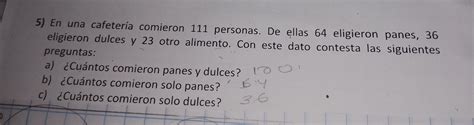 5) En una cafetería comieron 111 personas. De ellas 64 eligieron panes, 36
eligieron dulces y 23 otro alimento. Con este dato contesta las siguientes
preguntas:
a) ¿Cuántos comieron panes y dulces? 100
b) ¿Cuántos comieron solo panes? 64
c) ¿Cuántos comieron solo dulces? 36